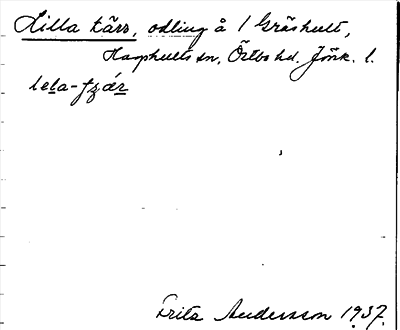 Lilla kärr, odling å 1 Gräshult,
Hagshults sn, Östbo hd. Jönk. l.
lela-
Brita Andersson 1937.